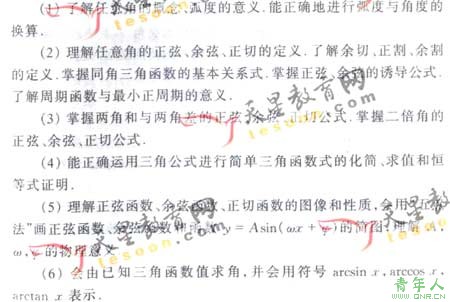 (1) 了解任意角的概念、弧度的意义.能正确地进行弧度与角度的
换算.
(2) 理解任意角的正弦、余弦、正切的定义.了解余切、正割、余割
的定义.掌握同角三角函数的基本关系式.掌握正弦、余弦的诱导公式.
了解周期函数与最小正周期的意义.
(3) 掌握两角和与两角差的正弦、余弦、正切公式.掌握二倍角的
正弦、余弦、正切公式.
(4) 能正确运用三角公式进行简单三角函数式的化简、求值和恒
等式证明.
(5) 理解正弦函数、余弦函数、正切函数的图像和性质,会用“五点
法”画正弦函数、余弦函数和函数 y = Asin(ωx + φ)的简图,理解 A,
ω,φ的物理意义.
(6) 会由已知三角函数值求角,并会用符号 arcsin x,arccos x,
arctan x 表示.
天星教育网
tesoon.com
天星教育网
tesoon.com
天星教育网
tesoon.com
青年人
www.QNR.CN